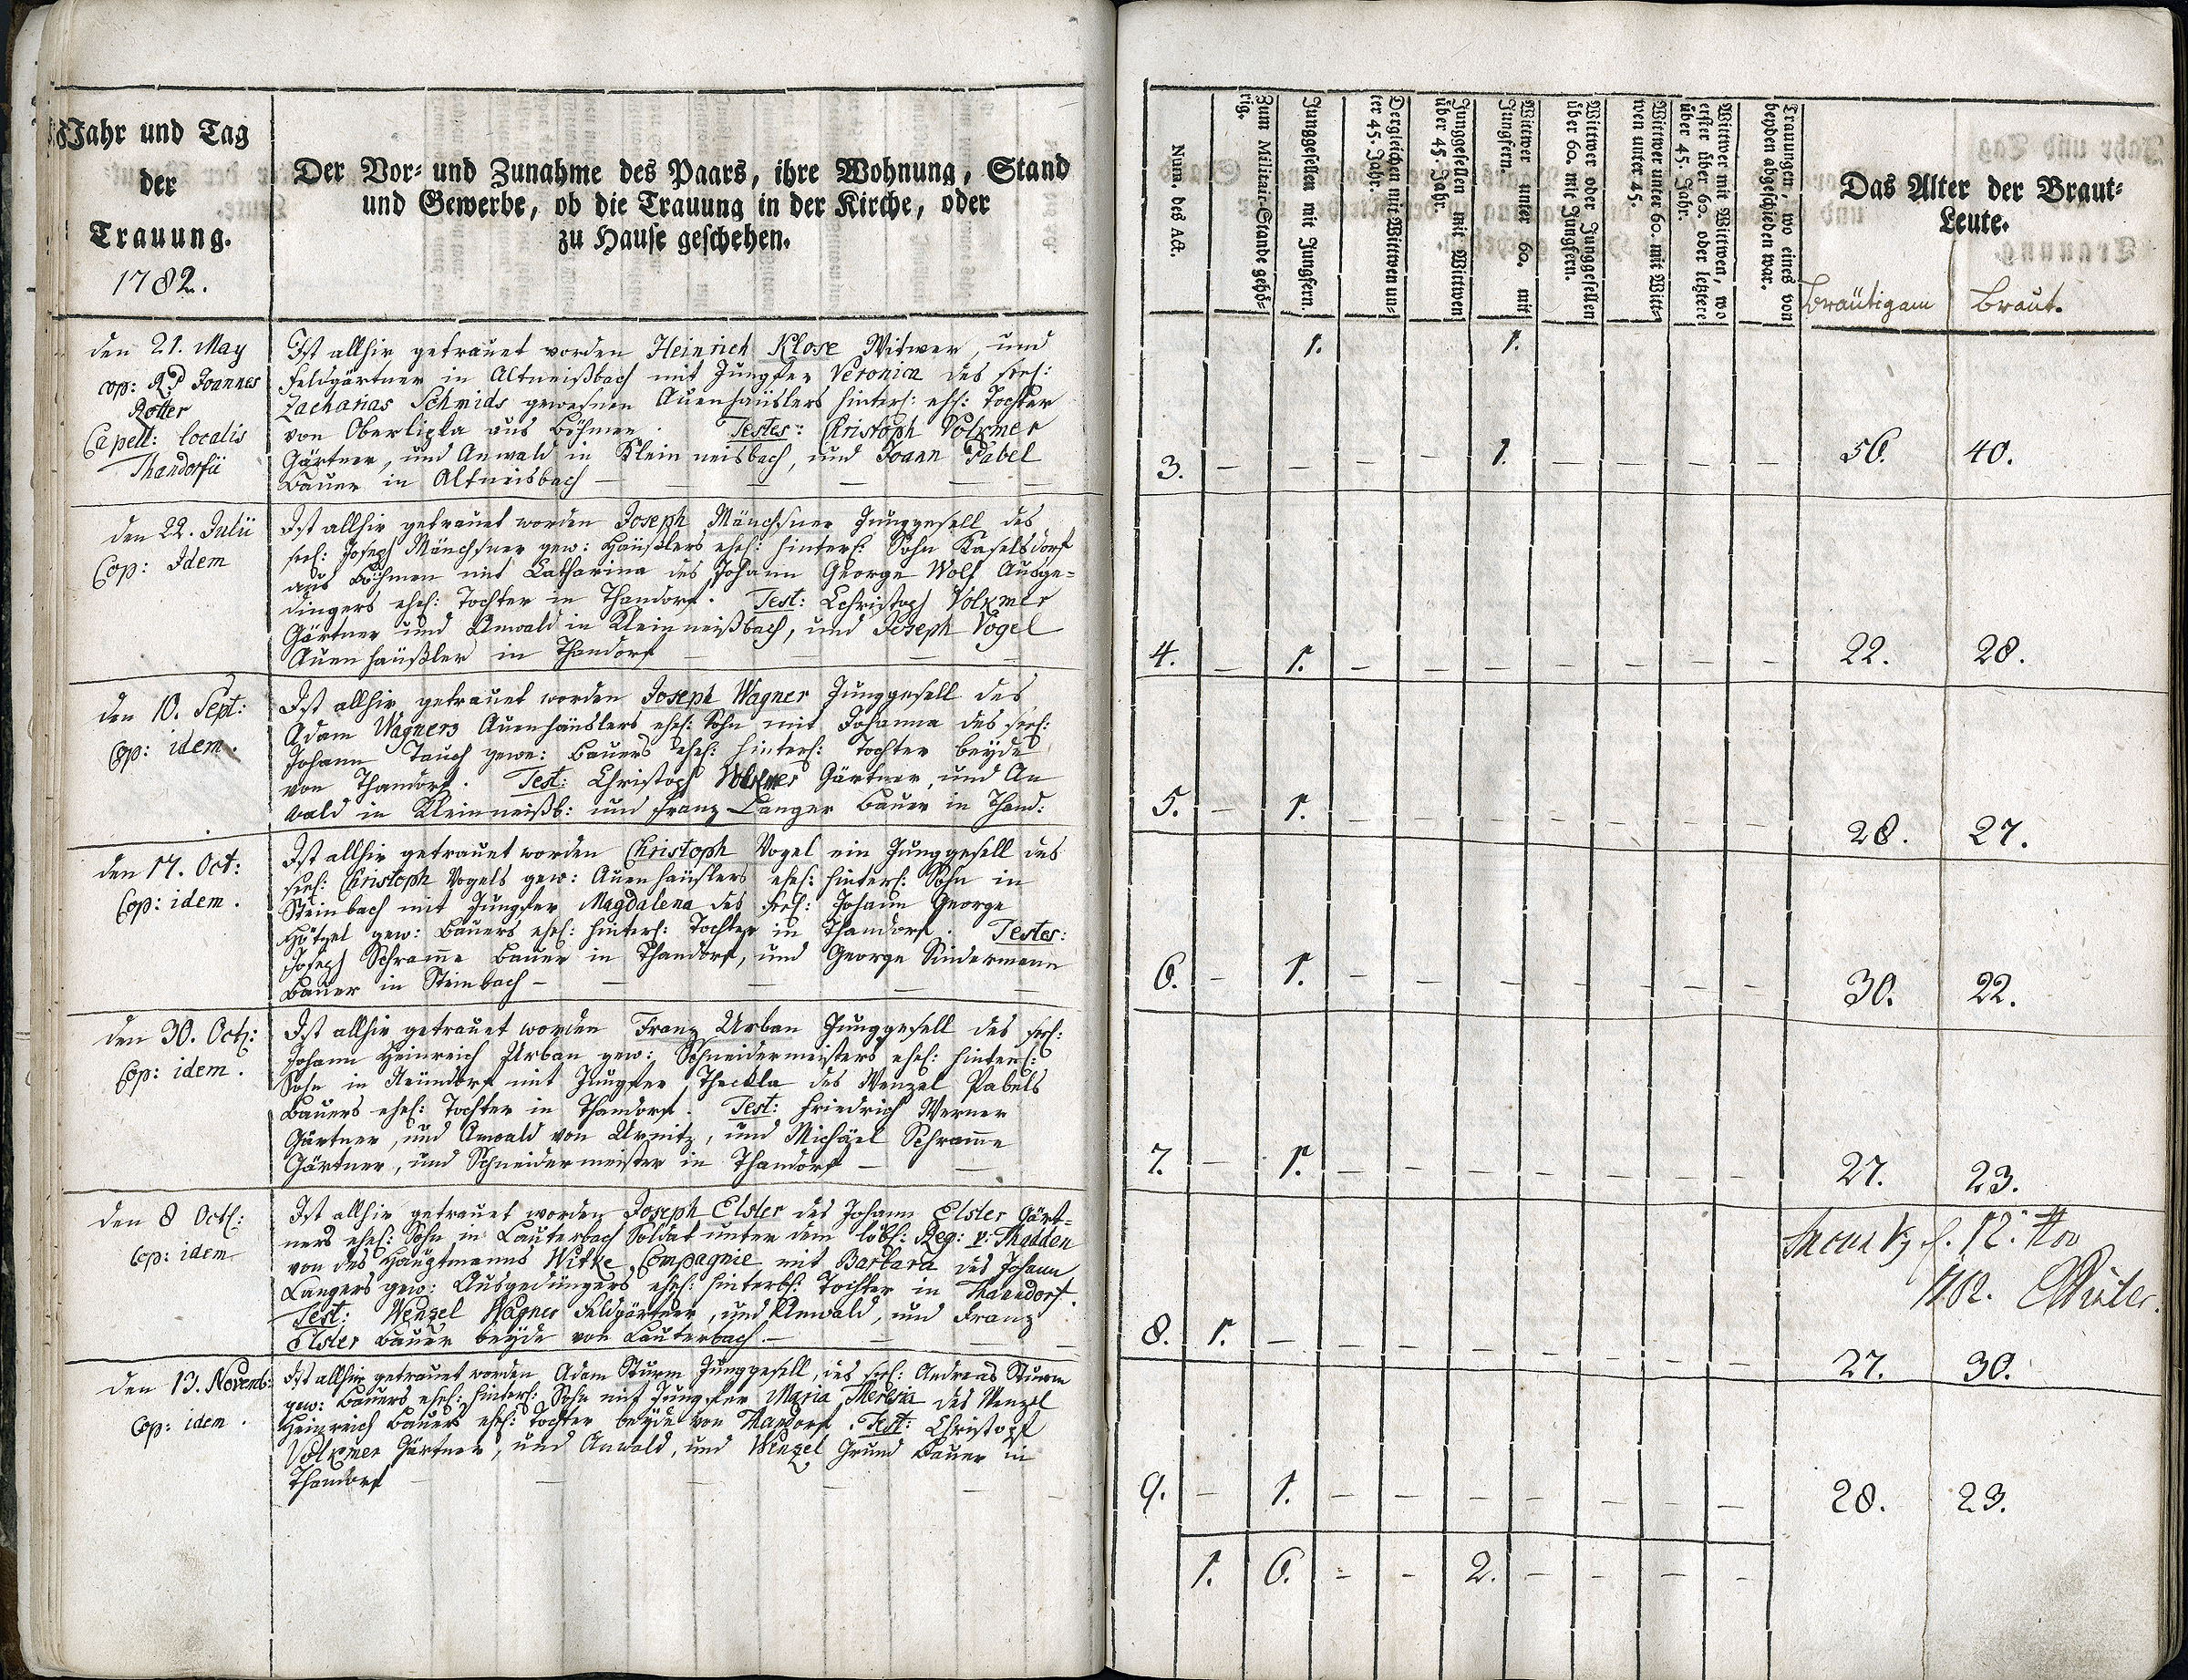 Jahr und Tag
der
Trauung.
1782.
Der Vor- und Zunahme des Paars, ihre Wohnung, Stand
und Gewerbe, ob die Trauung in der Kirche, oder
zu Hause geschehen.
den 21. May
cop: R.P. Joannes
Rotter
Capell: localis
Thandorfii
Ist allhir getrauet worden Heinrich Klose Witwer, und
Feldgärtner in Altneißbach mit Jungfer Veronica des seel:
Zacharias Schmids gewesnen Auenhäuslers hinterl: ehel: Tochter
von Oberlipka aus Böhmen. Testes: Christoph Volkmer
Gärtner, und Anwald in Klein neisbach, und Joann Pabel
Bauer in Altneisbach —
den 22. Julii
Cop: Idem
Ist allhir getrauet worden Joseph Mänchsner Junggesell des
seel: Joseph Mänchsner gew: Häußlers ehel: hinterl: Sohn Kaselsdorf
aus Böhmen mit Catharina des Johann George Wolf Ausge=
dingers ehel: Tochter in Thandorf. Test: Christoph Volkmer
Gärtner und Anwald in Kleinneißbach, und Joseph Vogel
Auenhäußler in Thandorf
den 10. Sept:
Cop: idem.
Ist allhir getrauet worden Joseph Wagner Junggesell des
Adam Wagners Auenhäuslers ehel: Sohn mit Johanna des seel:
Johann Tauch gewe: Bauers ehel: hinterl: Tochter beyde
von Thandorf. Test: Christoph Volkmer Gärtner, und An
wald in Kleinneißb: und Franz Langer Bauer in Thand:
den 17. Oct:
Cop: idem.
Ist allhir getrauet worden Christoph Vogel ein Junggesell des
seel: Christoph Vogels gew: Auenhäuslers ehel: hinterl: Sohn in
Steinbach mit Jungfer Magdalena des seel: Johann George
Hötzel gew: Bauers ehel: hinterl: Tochter in Thandorf. Testes:
Joseph Schramme Bauer in Thandorf, und George Sindermann
Bauer in Steinbach —
den 30. Oct:
Cop: idem.
Ist allhir getrauet worden Franz Urban Junggesell des seel:
Johann Heinreich Urban gew: Schneidermeisters ehel: hinterl:
Sohn in Neundorf mit Jungfer Theckla des Wenzel Pabels
Bauers ehel: Tochter in Thandorf. Test: Friedrich Werner
Gärtner, und Anwald von Urnitz, und Michael Schramme
Gärtner, und Schneidermeister in Thandorf —
den 8 Oct:
Cop: idem
Ist allhir getrauet worden Joseph Elster des Johann Elster Gärt=
ners ehel: Sohn in Lauterbach Soldat unter dem löbl: Reg: v: Thadden
von des Hauptmanns Witke Compagnie mit Barbara des Johann
Langers gew: Ausgedingers ehel: hinterbl: Tochter in Thanndorf.
Test: Wenzel Wagner Feldgärtner, und Anwald, und Franz
Elster Bauer beyde von Lauterbach. —
den 13. Novemb:
Cop: idem.
Ist allhir getrauet worden Adam Sturm Junggesell, des seel: Andreas Sturm
gew: Bauers ehel: hinterl: Sohn mit Jungfer Maria Theresia des Wenzel
Heinreich Bauers ehel: Tochter beyde von Thandorf. Test: Christoph
Volkmer Gärtner, und Anwald, und Wenzel Grund Bauer in
Thandorf
Num. des Act.
Zum Militair-Stande gehö-
rig.
Junggesellen mit Jungfern.
Dergleichen mit Wittwen un-
ter 45. Jahr.
Junggesellen mit Wittwen
über 45. Jahr.
Wittwer unter 60. mit
Jungfern.
Wittwer oder Junggesellen
über 60. mit Jungfern.
Wittwer unter 60. mit Witt-
wen unter 45.
Wittwer mit Wittwen, wo
erster über 60. oder letztere
über 45. Jahr.
Trauungen, wo eines von
beyden abgeschieden war.
Das Alter der Braut-
Leute.
Bräutigam Braut.
1. 1.
3. — — — — 1. — — — — 56. 40.
4. — 1. — — — — — — — 22. 28.
5. — 1. — — — — — — — 28. 27.
6. — 1. — — — — — — — 30. 22.
7. — 1. — — — — — — — 27. 23.
1782.
8. 1. — — — — — — — — 27. 30.
9. — 1. — — — — — — — 28. 23.
1. 6. - - 2. - - - -